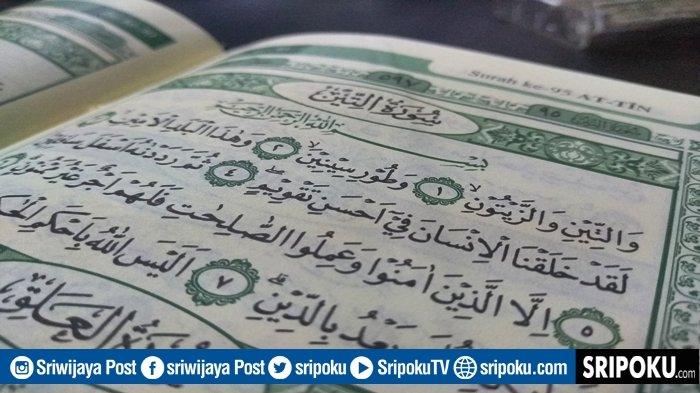 Surah ke-95 AT-TĪN
٥٩٧ ٩٥
سُوْرَةُ التِّيْنِ
بِسْمِ اللّٰهِ الرَّحْمٰنِ الرَّحِيْمِ
وَالتِّيْنِ وَالزَّيْتُوْنِۙ ١ وَطُوْرِ سِيْنِيْنَۙ ٢ وَهٰذَا الْبَلَدِ الْاَمِيْنِۙ
لَقَدْ خَلَقْنَا الْاِنْسَانَ فِيْٓ اَحْسَنِ تَقْوِيْمٍۖ ٤ ثُمَّ رَدَدْنٰهُ اَسْفَلَ
٥ اِلَّا الَّذِيْنَ اٰمَنُوْا وَعَمِلُوا الصّٰلِحٰتِ فَلَهُمْ اَجْرٌ غَيْرُ
بَعْدُ بِالدِّيْنِۗ ٧ اَلَيْسَ اللّٰهُ بِاَحْكَمِ
الْعَلَقِ
Sriwijaya Post sriwijaya Post sripoku SripokuTV sripoku.com
SRIPOKU.com